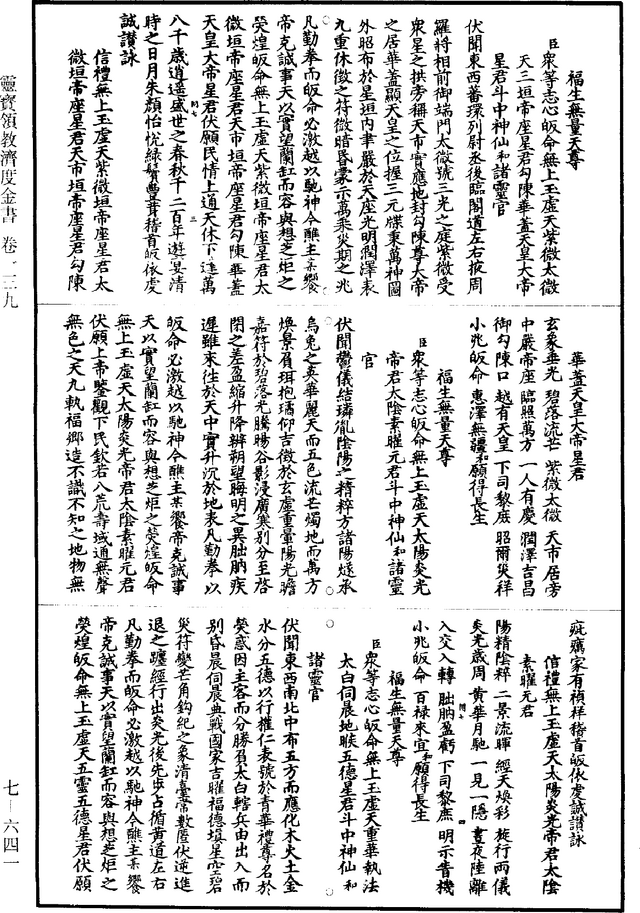 福生無量天尊
臣眾等志心皈命無上玉虛天紫微太微
天三垣帝座星君勾陳華蓋天皇大帝
星君斗中神仙和諸靈官
伏聞東西蕃環列尉丞後臨閣道左右掖周
羅將相前御端門太微號三光之庭紫微受
眾星之拱旁稱天市實應地封勾陳尊大帝
之居華蓋顯天皇之位握三元牒秉萬神圖
外昭布於星垣內聿嚴於天座光明潤澤表
九重休徵之符微暗昏蒙示萬乘災期之兆
凡勤拳而皈命必激越以馳神今醮主某饗
帝克誠事天以實望蘭缸而容與想芝炬之
熒煌皈命無上玉虛天紫微垣帝座星君太
微垣帝座星君天市垣帝座星君勾陳華蓋
天皇大帝星君伏願民情上通天休下逮萬
八千歲逍遥盛世之春秋千二百年遊宴清
時之日月朱顏怡悅綠鬢豐茸稽首皈依虔
誠讚詠
信禮無上玉虛天紫微垣帝座星君太
微垣帝座星君天市垣帝座星君勾陳
華蓋天皇大帝星君
玄象垂光 碧落流芒 紫微太微 天市居旁
中嚴帝座 臨照萬方 一人有慶 潤澤吉昌
御勾陳口 越有天皇 下司黎庶 昭爾災祥
小兆皈命 惠澤無疆和願得長生
福生無量天尊
臣眾等志心皈命無上玉虛天太陽炎光
帝君太陰素曜元君斗中神仙和諸靈
官
伏聞鬱儀結璘胤陰陽之精粹方諸陽燧承
烏兔之英華麗天而五色流芒燭地而萬方
煥景負珥抱璚仰吉徵於玄虛重暈陽光瞻
嘉符於碧落光騰暘谷影浸廣寒別分至啓
閉之差盈縮升降辨朔望晦明之異朏朒疾
遲雖來往於天中實升沉於地表凡勤拳以
皈命必激越以馳神今醮主某饗帝克誠事
天以實望蘭缸而容與想芝炬之熒煌皈命
無上玉虛天太陽炎光帝君太陰素曜元君
伏願上帝鑒觀下民欽若八荒壽域通無聲
無色之天九執福鄉造不識不知之地物無
疵癘家有禎祥稽首皈依虔誠讚詠
信禮無上玉虛天太陽炎光帝君太陰
素曜元君
陽精陰粹 二景流暉 經天煥彩 旋行兩儀
炎光歲周 黃華月馳 一見一隱 晝夜陸離
入交入轉 朏朒盈虧 下司黎庶 明示眚機
小兆皈命 百禄來宜和願得長生
福生無量天尊
臣眾等志心皈命無上玉虛天重華執法
太白伺晨地睺五德星君斗中神仙和
諸靈官
伏聞東西南北中布五方而應化木火土金
水分五德以行權仁表號於青華禮尊名於
熒惑因主客而分勝負太白轄兵由出入而
別昏晨伺晨典戰國家吉曜福德塡星空碧
災符變芒角鉤紀之象清臺常數匿伏逆進
退之躔經行出炎光後先步占循黃道左右
凡勤拳而皈命必激越以馳神今醮主某饗
帝克誠事天以實望蘭缸而容與想芝炬之
熒煌皈命無上玉虛天五靈五德星君伏願
靈寶領教濟度金書 卷二三九
七－六四一